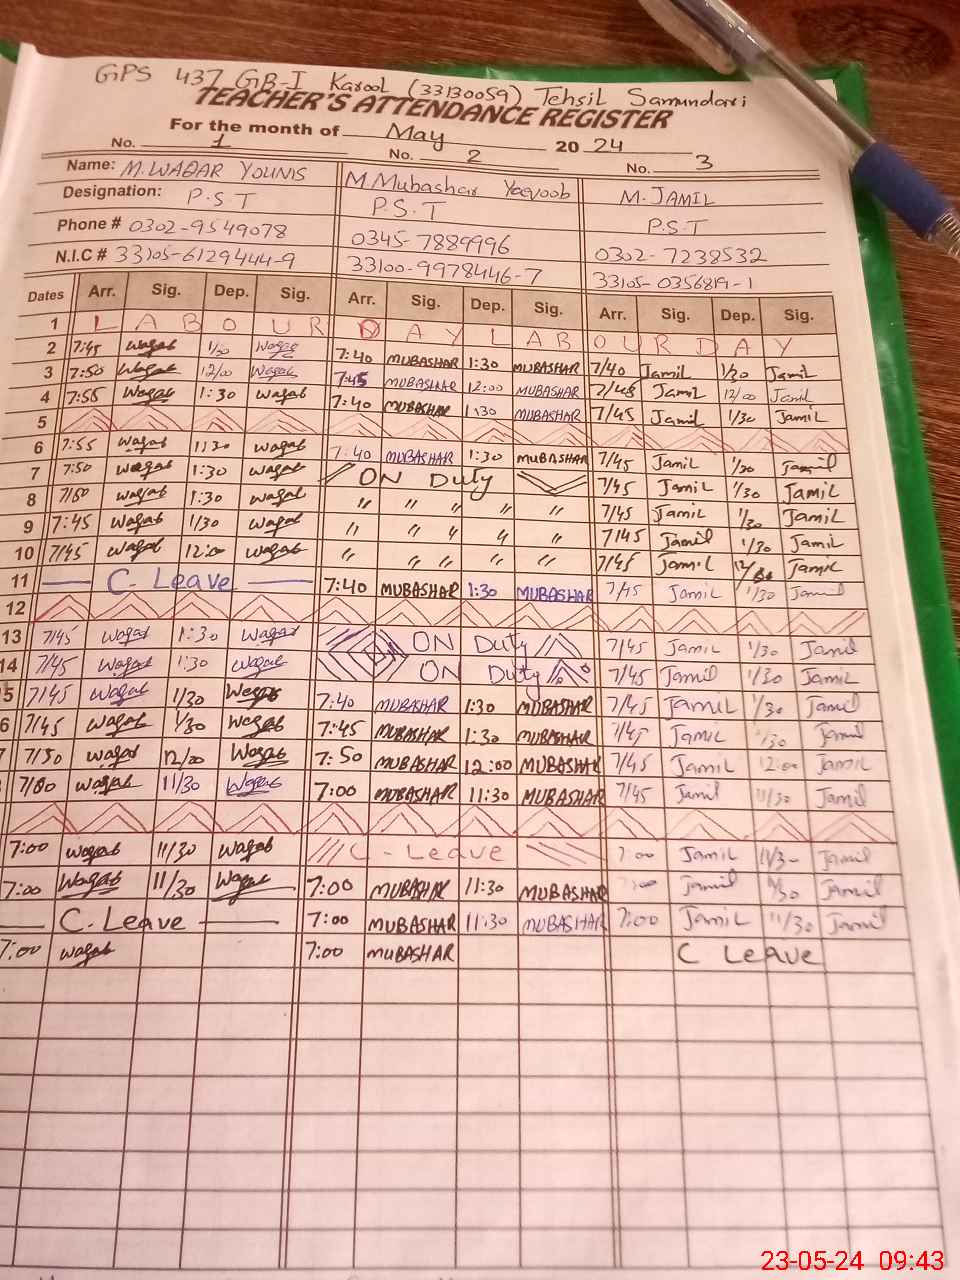 GPS 437 GB-I Karool (33130059) Tehsil Samundari
TEACHER'S ATTENDANCE REGISTER
For the month of May 2024
No. 1 No. 2 No. 3
Name: M.WAQAR YOUNIS M.Mubashar Yaqoob M.JAMIL
Designation: P.S.T P.S.T P.S.T
Phone # 0302-9549078 0345-7889996 0302-7238532
N.I.C # 33105-6129444-9 33100-9978446-7 33105-0356819-1
Dates Arr. Sig. Dep. Sig. Arr. Sig. Dep. Sig. Arr. Sig. Dep. Sig.
1 LABOUR DAY LABOUR DAY
2 7:45 Waqab 1/30 Waqab 7:40 MUBASHAR 1:30 MUBASHAR 7/40 Jamil 1/30 Jamil
3 7:50 Waqab 12/00 Waqab 7:45 MUBASHAR 12:00 MUBASHAR 7/45 JamiL 12/00 Jamil
4 7:55 Waqab 1:30 Waqab 7:40 MUBASHAR 1:30 MUBASHAR 7/45 Jamil 1/30 Jamil
5
6 7:55 Waqab 1:30 Waqab 7:40 MUBASHAR 1:30 MUBASHAR 7/45 Jamil 1/30 Jamil
7 7:50 Waqab 1:30 Waqab ON Duty 7/45 JamiL 1/30 JamiL
8 1:30 Waqab " " " " " 7/45 JamiL 1/30 JamiL
9 7:45 Waqab 1/30 Waqab " " " " " 7/45 Jamil 1/30 JamiL
10 7/45 Waqab 12:00 Waqab " " " " " 7/45 Jamil JamiL
11 C. Leave 7:40 MUBASHAR 1:30 MUBASHAR 7/45 Jamil 1/30 Jamil
12
13 7/45 Waqab 1:30 Waqab ON Duty 7/45 Jamil 1/30 Jamil
14 7/45 Waqab 1:30 Waqab ON Duty 7/45 Jamil 1/30 JamiL
5 7/45 Waqab 1/30 Waqab 7:40 MUBASHAR 1:30 MUBASHAR 7/45 JamiL 1/30 Jamil
6 7/45 Waqab 1/30 Waqab 7:45 MUBASHAR 1:30 MUBASHAR 7/45 JamiL 1/30 Jamil
7/50 Waqab 12/00 Waqab 7:50 MUBASHAR 12:00 MUBASHAR 7/45 JamiL 12:00 JamiL
7/00 Waqab 11/30 Waqab 7:00 MUBASHAR 11:30 MUBASHAR 7/45 Jamil 11/30 Jamil
7:00 Waqab 11/30 Waqab C-Leave 7:00 JamiL Jamil
7:00 Waqab 11/30 Waqab 7:00 MUBASHAR 11:30 MUBASHAR Jamil Jamil
C. Leave 7:00 MUBASHAR 11:30 MUBASHAR 7:00 JamiL 11/30 Jamil
7:00 Waqab 7:00 MUBASHAR C Leave
23-05-24 09:43